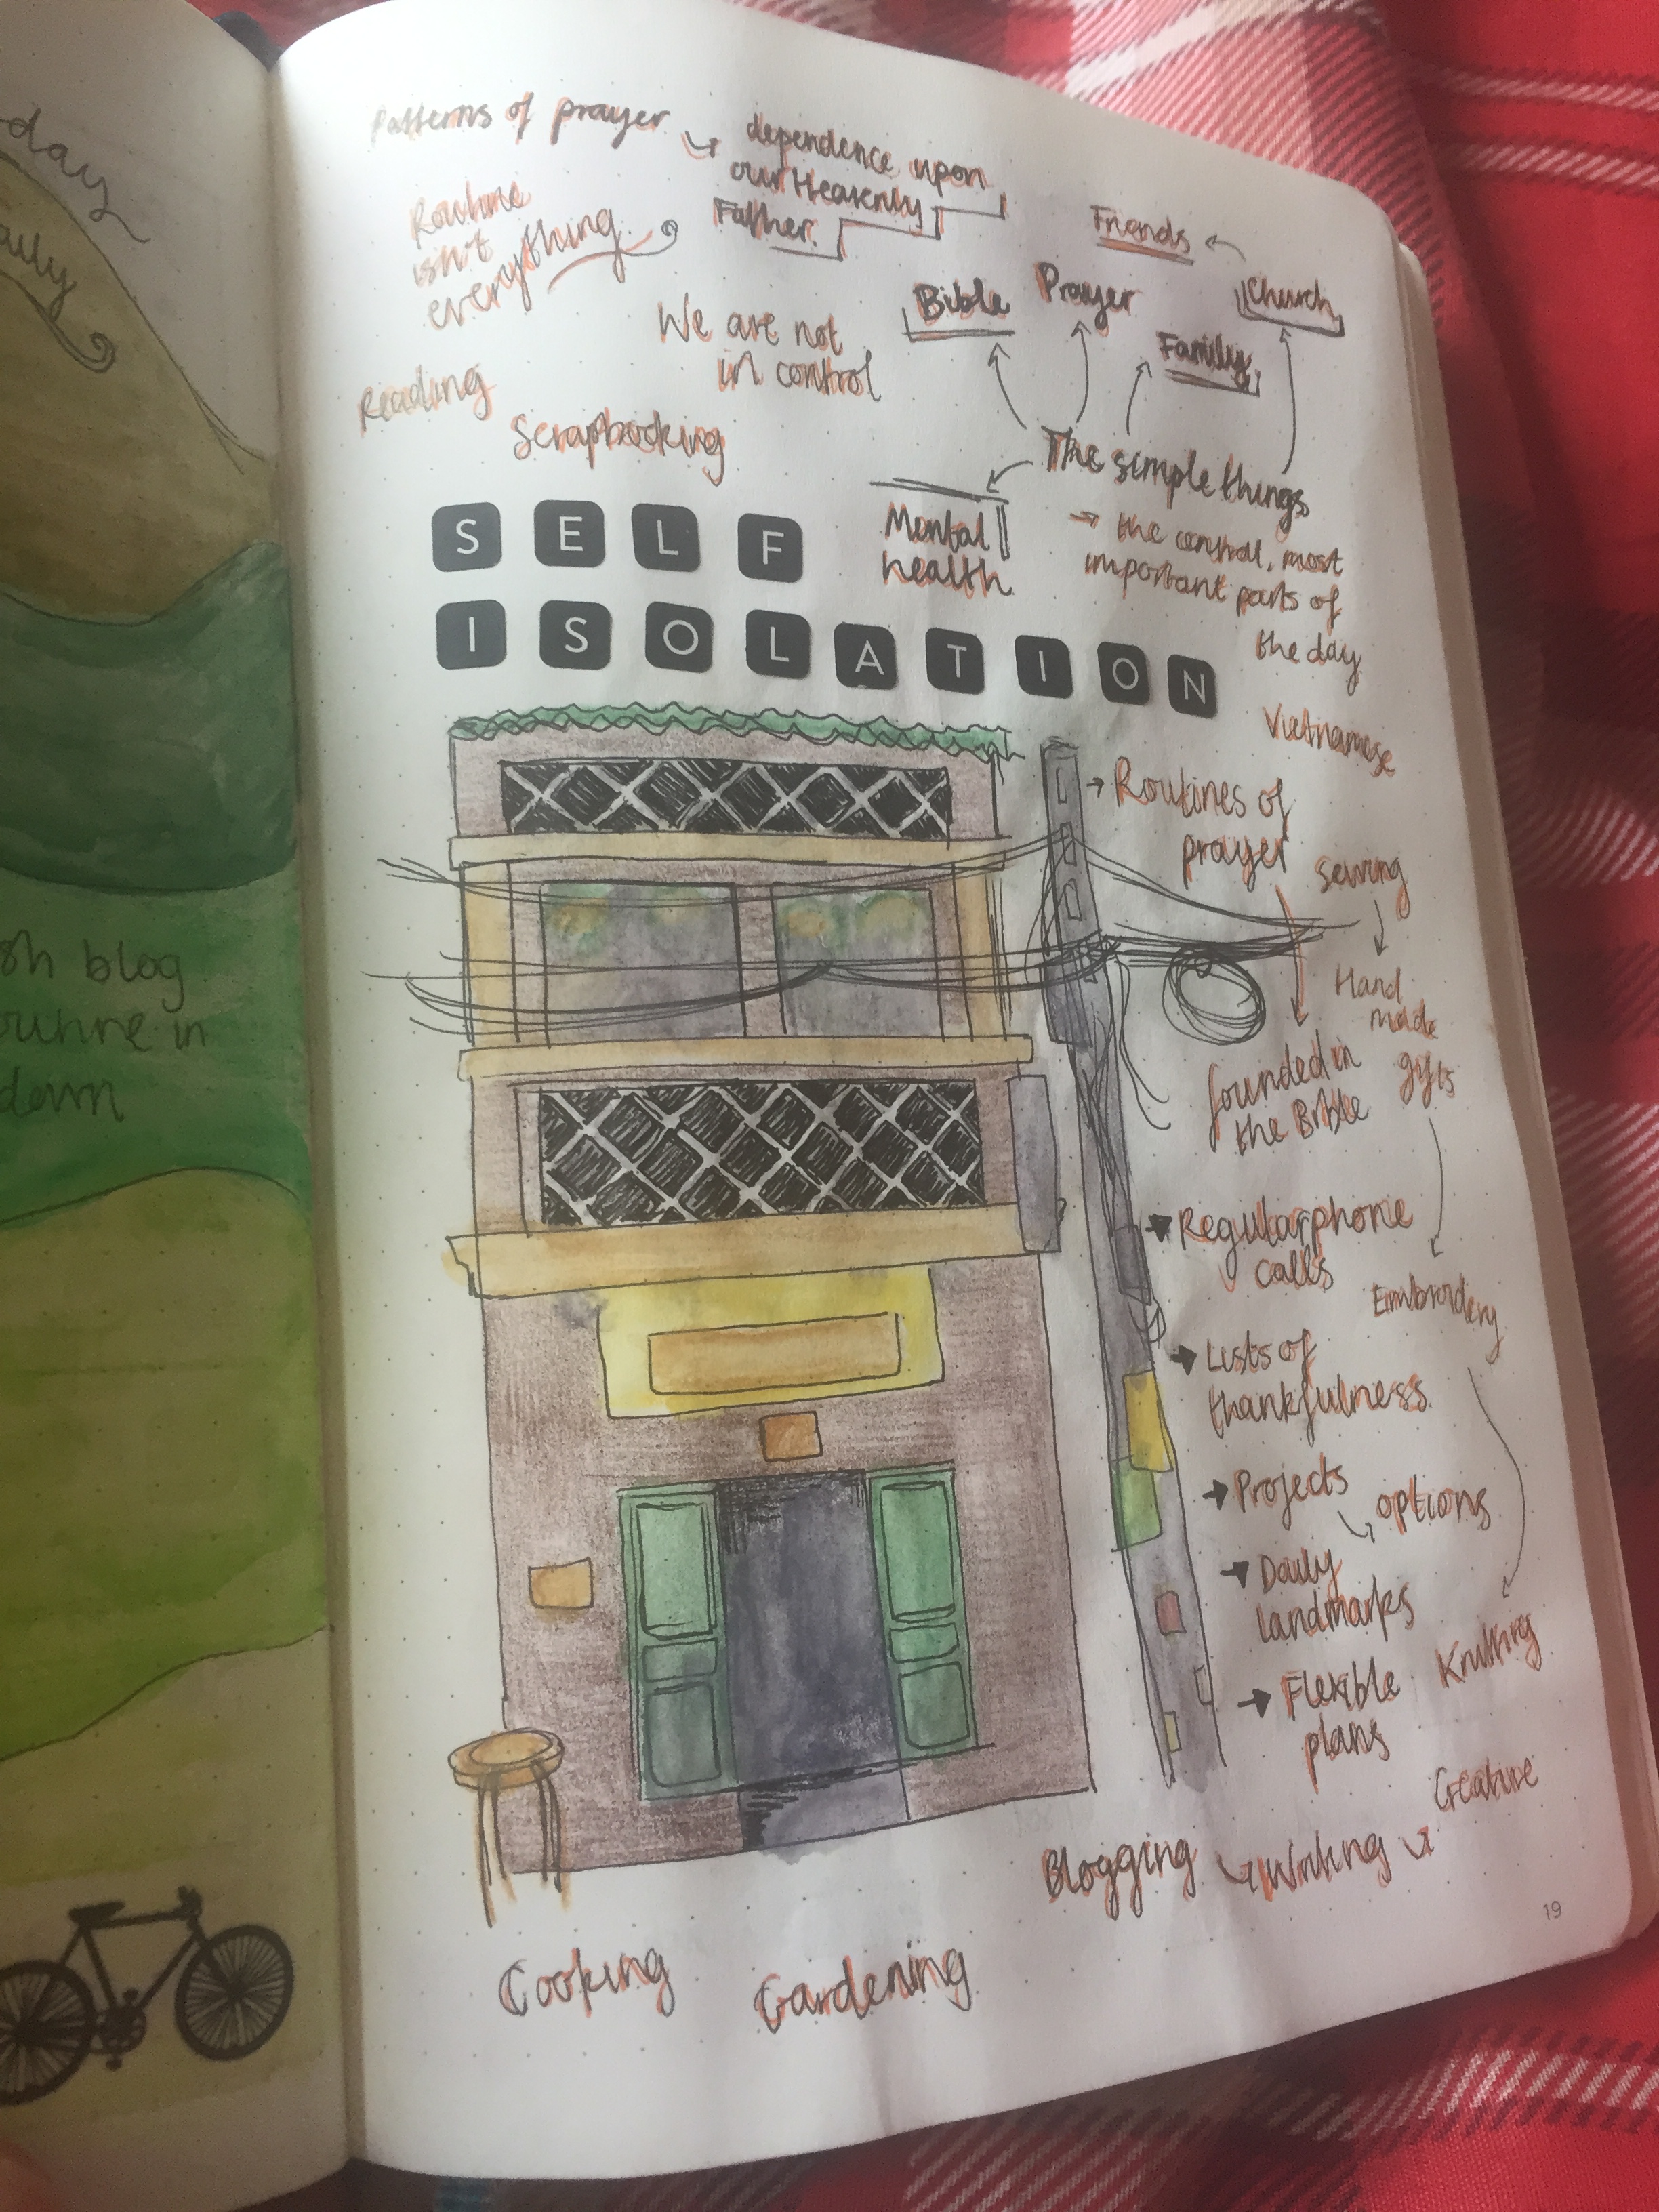 day
sh blog
routine in
Patterns of prayer
dependence upon
our Heavenly
Father.
Routine
isn't
everything
Friends
Bible
Prayer
Church
Family
We are not
in control
Reading
Scrapbooking
The simple things
Mental
health
the central, most
important parts of
the day
SELF
ISOLATION
Vietnamese
Routines of
prayer
Sewing
Hand
made
gifts
founded in
the Bible
Regular phone
calls
Embroidery
Lists of
thankfulness
Projects
options
Daily
landmarks
Knitting
Flexible
plans
Creative
Blogging
Writing
19
Cooking
Gardening